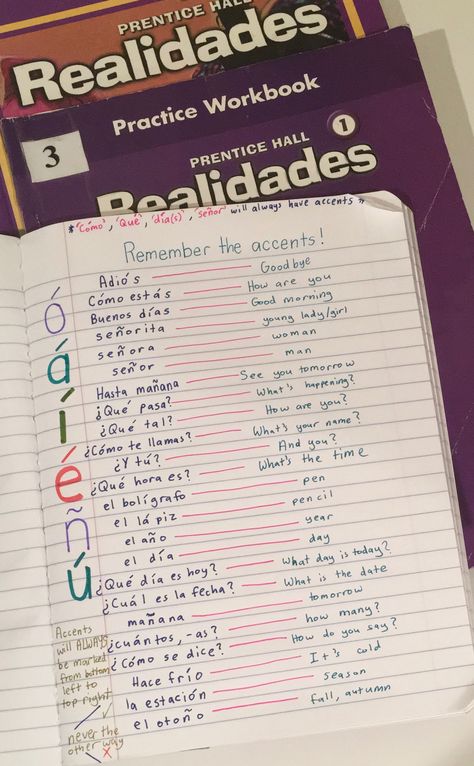 PRENTICE HALL
Realidades
Practice Workbook
3
PRENTICE HALL
1
Realidades
* "Cómo", "Qué", "día(s)", "señor" will always have accents *
Remember the accents!
Adiós Goodbye
Cómo estás How are you
Buenos días Good morning
señorita young lady/girl
señora woman
señor man
Hasta mañana See you tomorrow
¿Qué pasa? What's happening?
¿Qué tal? How are you?
¿Cómo te llamas? What's your name?
¿Y tú? And you?
¿Qué hora es? What's the time
el bolígrafo pen
el lápiz pencil
el año year
el día day
¿Qué día es hoy? What day is today?
¿Cuál es la fecha? What is the date
mañana tomorrow
¿cuántos, -as? how many?
¿Cómo se dice? How do you say?
Hace frío It's cold
la estación season
el otoño fall, autumn
ó
á
í
é
ñ
ú
Accents
will ALWAYS
be marked
from bottom
left to
top right
never the
other way
x